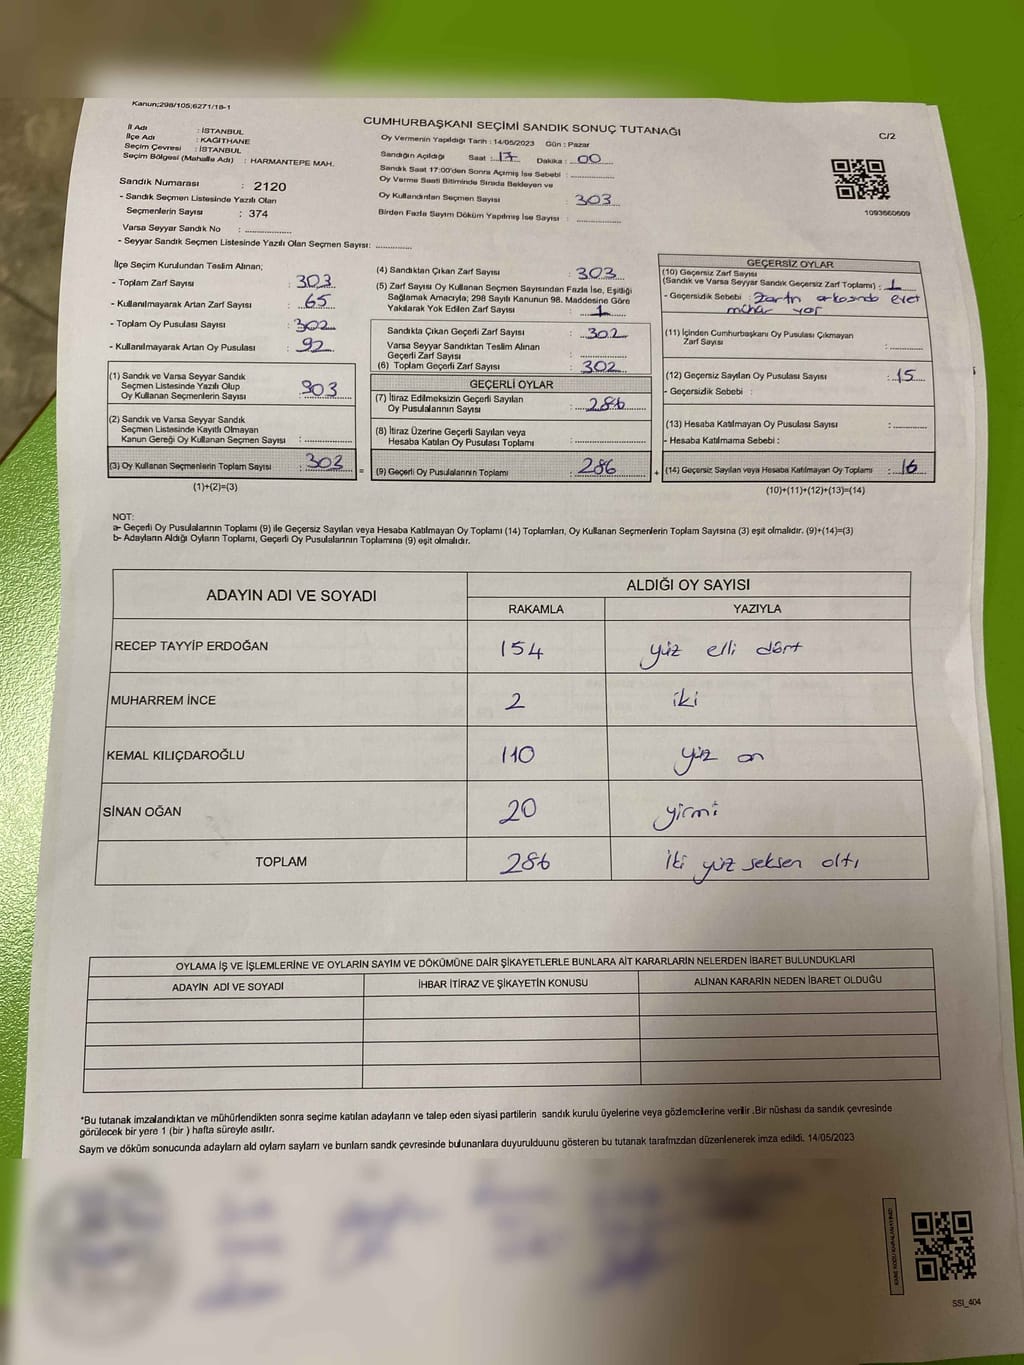 Kanun;298/105;6271/18-1
CUMHURBAŞKANI SEÇİMİ SANDIK SONUÇ TUTANAĞI
C/2
İl Adı : İSTANBUL
İlçe Adı : KAĞITHANE
Seçim Çevresi : İSTANBUL
Seçim Bölgesi (Mahalle Adı) : HARMANTEPE MAH.
Sandık Numarası : 2120
- Sandık Seçmen Listesinde Yazılı Olan
Seçmenlerin Sayısı : 374
Varsa Seyyar Sandık No :
- Seyyar Sandık Seçmen Listesinde Yazılı Olan Seçmen Sayısı:
Oy Vermenin Yapıldığı Tarih : 14/05/2023 Gün : Pazar
Sandığın Açıldığı Saat : 17 Dakika : 00
Sandık Saat 17:00'den Sonra Açılmış İse Sebebi :
Oy Verme Saati Bitiminde Sırada Bekleyen ve
Oy Kullandırılan Seçmen Sayısı : 303
Birden Fazla Sayım Döküm Yapılmış İse Sayısı :
1093660609
İlçe Seçim Kurulundan Teslim Alınan;
- Toplam Zarf Sayısı : 303
- Kullanılmayarak Artan Zarf Sayısı : 65
- Toplam Oy Pusulası Sayısı : 302
- Kullanılmayarak Artan Oy Pusulası : 92
(1) Sandık ve Varsa Seyyar Sandık
Seçmen Listesinde Yazılı Olup
Oy Kullanan Seçmenlerin Sayısı : 303
(2) Sandık ve Varsa Seyyar Sandık
Seçmen Listesinde Kayıtlı Olmayan
Kanun Gereği Oy Kullanan Seçmen Sayısı :
(3) Oy Kullanan Seçmenlerin Toplam Sayısı : 303
(1)+(2)=(3)
(4) Sandıktan Çıkan Zarf Sayısı : 303
(5) Zarf Sayısı Oy Kullanan Seçmen Sayısından Fazla İse, Eşitliği
Sağlamak Amacıyla; 298 Sayılı Kanunun 98. Maddesine Göre
Yakılarak Yok Edilen Zarf Sayısı : 1
Sandıkta Çıkan Geçerli Zarf Sayısı : 302
Varsa Seyyar Sandıktan Teslim Alınan
Geçerli Zarf Sayısı :
(6) Toplam Geçerli Zarf Sayısı : 302
GEÇERLİ OYLAR
(7) İtiraz Edilmeksizin Geçerli Sayılan
Oy Pusulalarının Sayısı : 286
(8) İtiraz Üzerine Geçerli Sayılan veya
Hesaba Katılan Oy Pusulası Toplamı :
(9) Geçerli Oy Pusulalarının Toplamı : 286
GEÇERSİZ OYLAR
(10) Geçersiz Zarf Sayısı
(Sandık ve Varsa Seyyar Sandık Geçersiz Zarf Toplamı) : 1
- Geçersizlik Sebebi : Zarfın arkasında evet
mühür var
(11) İçinden Cumhurbaşkanı Oy Pusulası Çıkmayan
Zarf Sayısı :
(12) Geçersiz Sayılan Oy Pusulası Sayısı : 15
- Geçersizlik Sebebi :
(13) Hesaba Katılmayan Oy Pusulası Sayısı :
- Hesaba Katılmama Sebebi :
(14) Geçersiz Sayılan veya Hesaba Katılmayan Oy Toplamı : 16
(10)+(11)+(12)+(13)=(14)
NOT:
a- Geçerli Oy Pusulalarının Toplamı (9) ile Geçersiz Sayılan veya Hesaba Katılmayan Oy Toplamı (14) Toplamları, Oy Kullanan Seçmenlerin Toplam Sayısına (3) eşit olmalıdır. (9)+(14)=(3)
b- Adayların Aldığı Oyların Toplamı, Geçerli Oy Pusulalarının Toplamına (9) eşit olmalıdır.
ADAYIN ADI VE SOYADI ALDIĞI OY SAYISI
RAKAMLA YAZIYLA
RECEP TAYYİP ERDOĞAN 154 yüz elli dört
MUHARREM İNCE 2 iki
KEMAL KILIÇDAROĞLU 110 yüz on
SİNAN OĞAN 20 yirmi
TOPLAM 286 iki yüz seksen altı
OYLAMA İŞ VE İŞLEMLERİNE VE OYLARIN SAYIM VE DÖKÜMÜNE DAİR ŞİKAYETLERLE BUNLARA AİT KARARLARIN NELERDEN İBARET BULUNDUKLARI
ADAYIN ADI VE SOYADI İHBAR İTİRAZ VE ŞİKAYETİN KONUSU ALINAN KARARIN NEDEN İBARET OLDUĞU
*Bu tutanak imzalandıktan ve mühürlendikten sonra seçime katılan adayların ve talep eden siyasi partilerin sandık kurulu üyelerine veya gözlemcilerine verilir .Bir nüshası da sandık çevresinde
görülecek bir yere 1 (bir ) hafta süreyle asılır.
Sayım ve döküm sonucunda adayların ald oyların sayların ve bunların sandk çevresinde bulunanlara duyurulduunu gösteren bu tutanak tarafmzdan düzenlenerek imza edildi. 14/05/2023
SSI_404